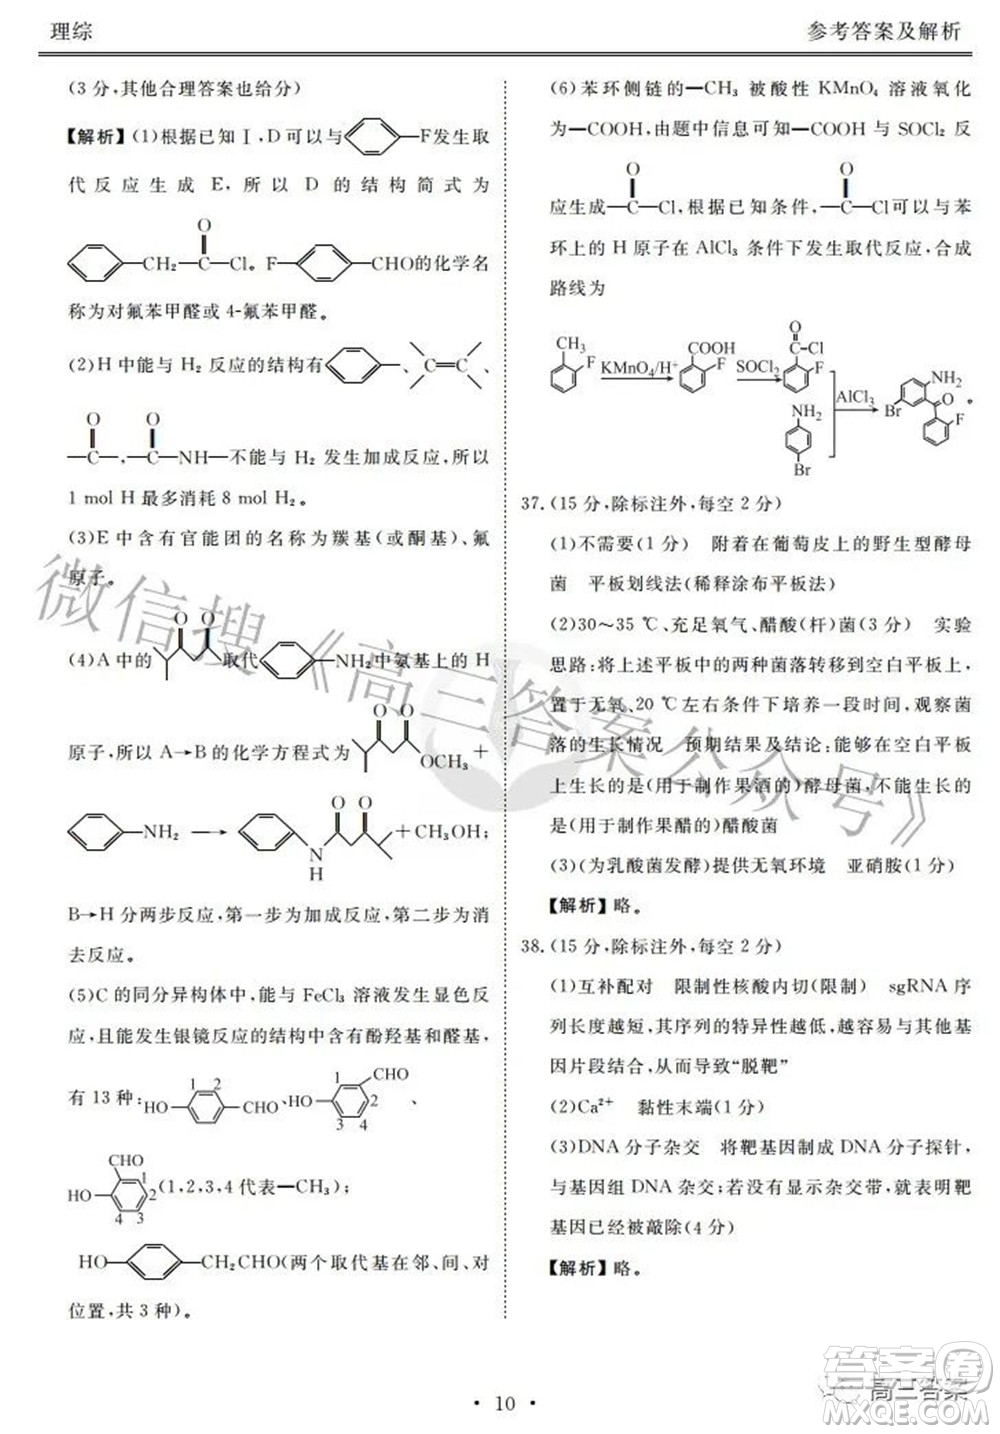 理综
参考答案及解析
(3 分,其他合理答案也给分)
【解析】(1)根据已知Ⅰ,D可以与 —F发生取
代反应生成 E,所以 D 的结构简式为
O
—CH₂—C—Cl。F— —CHO的化学名
称为对氟苯甲醛或 4-氟苯甲醛。
(2)H中能与 H₂ 反应的结构有 、 、
O O
—C—,—C—NH—不能与 H₂ 发生加成反应,所以
1 mol H最多消耗 8 mol H₂。
(3)E 中含有官能团的名称为羰基(或酮基)、氟
原子。
O O
(4)A 中的 取代 —NH₂中氨基上的 H
O O
原子,所以 A→B 的化学方程式为 OCH₃ +
—NH₂ → N H O O +CH₃OH;
B→H 分两步反应,第一步为加成反应,第二步为消
去反应。
(5)C 的同分异构体中,能与 FeCl₃ 溶液发生显色反
应,且能发生银镜反应的结构中含有酚羟基和醛基,
有 13 种: HO— 1 2 —CHO、HO— 1 CHO 2 3 4 、
CHO HO 1 2 3 4 (1,2,3,4 代表—CH₃);
HO— —CH₂CHO(两个取代基在邻、间、对
位置,共 3 种)。
(6)苯环侧链的—CH₃ 被酸性 KMnO₄ 溶液氧化
为—COOH,由题中信息可知—COOH 与 SOCl₂ 反
O O
应生成—C—Cl,根据已知条件,—C—Cl可以与苯
环上的 H 原子在 AlCl₃ 条件下发生取代反应,合成
路线为
CH₃ F KMnO₄/H⁺ COOH F SOCl₂ O Cl F
NH₂ Br AlCl₃ NH₂ Br O F 。
37.(15 分,除标注外,每空 2 分)
(1)不需要(1 分) 附着在葡萄皮上的野生型酵母
菌 平板划线法(稀释涂布平板法)
(2)30～35 ℃、充足氧气、醋酸(杆)菌(3 分) 实验
思路:将上述平板中的两种菌落转移到空白平板,
置于无氧、20 ℃左右条件下培养一段时间,观察菌
落的生长情况 预期结果及结论:能够在空白平板
上生长的是(用于制作果酒的)酵母菌,不能生长的
是(用于制作果醋的)醋酸菌
(3)(为乳酸菌发酵)提供无氧环境 亚硝胺(1 分)
【解析】略。
38.(15 分,除标注外,每空 2 分)
(1)互补配对 限制性核酸内切(限制) sgRNA 序
列长度越短,其序列的特异性越低,越容易与其他基
因片段结合,从而导致“脱靶”
(2)Ca²⁺ 黏性末端(1 分)
(3)DNA 分子杂交 将靶基因制成 DNA 分子探针,
与基因组 DNA 杂交;若没有显示杂交带,就表明靶
基因已经被敲除(4 分)
【解析】略。
• 10 •
微信搜《高三答案公众号》
高三答案
答案圈
MXQE.COM